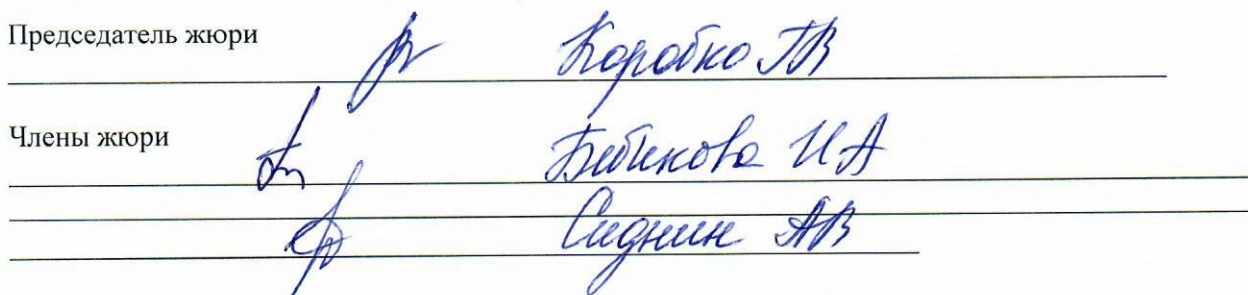 Председатель жюри Коробко ГВ
Члены жюри Бибикова ИА
Сиднин АВ